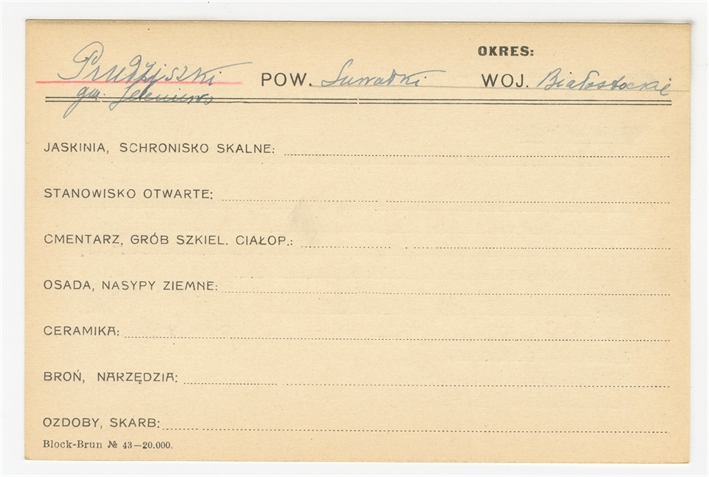 OKRES:
Prudziszki POW. Suwałki WOJ. Białostockie
gm. Jeleniewo
JASKINIA, SCHRONISKO SKALNE:
STANOWISKO OTWARTE:
CMENTARZ, GRÓB SZKIEL. CIAŁOP.:
OSADA, NASYPY ZIEMNE:
CERAMIKA:
BROŃ, NARZĘDZIA:
OZDOBY, SKARB:
Block-Brun № 43—20.000.